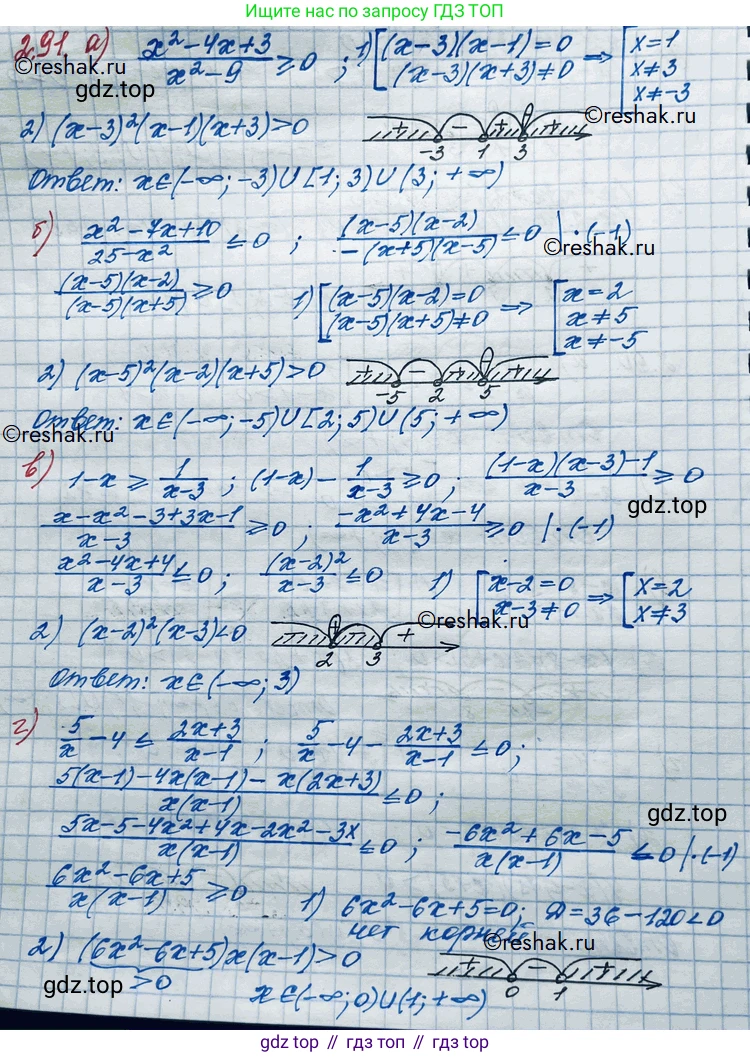 Ищите нас в поиске по запросу ГДЗ ТОП
2.91. а) (x²-4x+3)/(x²-9) ≥ 0 ; 1) [(x-3)(x-1)=0 ⇒ [x=1
(x-3)(x+3)≠0 x≠3
x≠-3
©reshak.ru
gdz.top
©reshak.ru
2) (x-3)²(x-1)(x+3)>0 + - + +
-3 1 3
Ответ: x∈(-∞;-3)∪[1;3)∪(3;+∞)
б) (x²-7x+10)/(25-x²) ≤ 0 ; (x-5)(x-2)/(-(x+5)(x-5)) ≤ 0 |·(-1)
©reshak.ru
(x-5)(x-2)/((x-5)(x+5)) ≥ 0 1) [(x-5)(x-2)=0 ⇒ [x=2
(x-5)(x+5)≠0 x≠5
x≠-5
2) (x-5)²(x-2)(x+5)>0
-5 2 5
Ответ: x∈(-∞;-5)∪[2;5)∪(5;+∞)
©reshak.ru
в) 1-x ≥ 1/(x-3) ; (1-x) - 1/(x-3) ≥ 0 ; ((1-x)(x-3)-1)/(x-3) ≥ 0
gdz.top
(x-x²-3+3x-1)/(x-3) ≥ 0 ; (-x²+4x-4)/(x-3) ≥ 0 |·(-1)
(x²-4x+4)/(x-3) ≤ 0 ; (x-2)²/(x-3) ≤ 0 1) [x-2=0 ⇒ [x=2
x-3≠0 x≠3
©reshak.ru
2) (x-2)²(x-3)<0 +
2 3
Ответ: x∈(-∞;3)
г) 5/x - 4 ≤ (2x+3)/(x-1) ; 5/x - 4 - (2x+3)/(x-1) ≤ 0 ;
(5(x-1)-4x(x-1)-x(2x+3))/(x(x-1)) ≤ 0 ;
gdz.top
(5x-5-4x²+4x-2x²-3x)/(x(x-1)) ≤ 0 ; (-6x²+6x-5)/(x(x-1)) ≤ 0 |·(-1)
(6x²-6x+5)/(x(x-1)) ≥ 0 1) 6x²-6x+5=0; Д=36-120<0
нет корней
©reshak.ru
2) (6x²-6x+5)x(x-1)>0 + - +
>0 0 1
gdz.top
x∈(-∞;0)∪(1;+∞)
gdz top // гдз топ // gdz.top